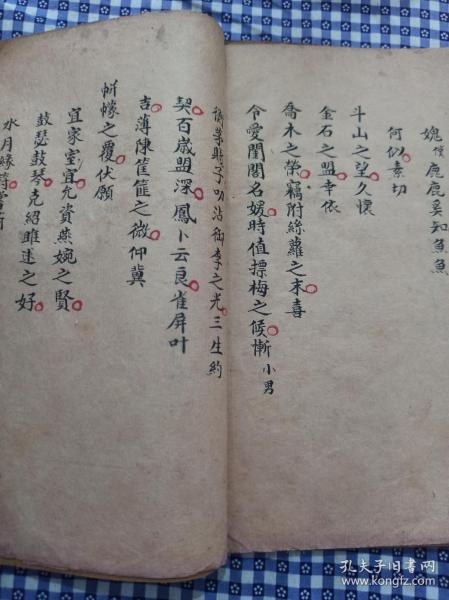 愧僕鹿鹿妄知魚魚
何似素切
斗山之望久懷
金石之盟幸依
喬木之榮竊附絲蘿之末喜
令愛閨閣名媛時值摽梅之候慚小男
子叨沾御李之光三生約
契百歲盟深鳳卜云良雀屏叶
吉薄陳筐篚之微仰冀
帡幪之覆伏願
宜家室宜允資燕婉之賢
鼓瑟鼓琴克紹雎逑之好
水月緣
孔夫子旧书网
www.kongfz.com